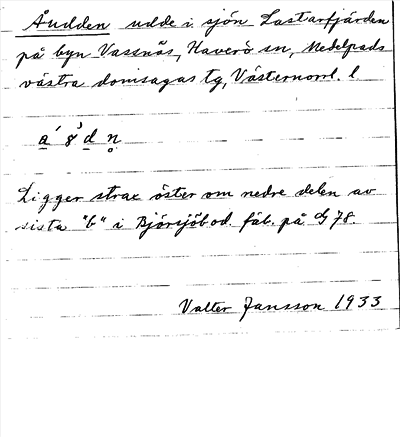 Åudden udde i sjön Lastarfjärden
på byn Vassnäs, Haverö sn, Medelpads
västra domsagas tg, Västernorrl. l.
a´ 8 d n̥
Ligger strax öster om nedre delen av
sista "b" i Björsjöbod. fäb. på G 78.
Valter Jansson 1933